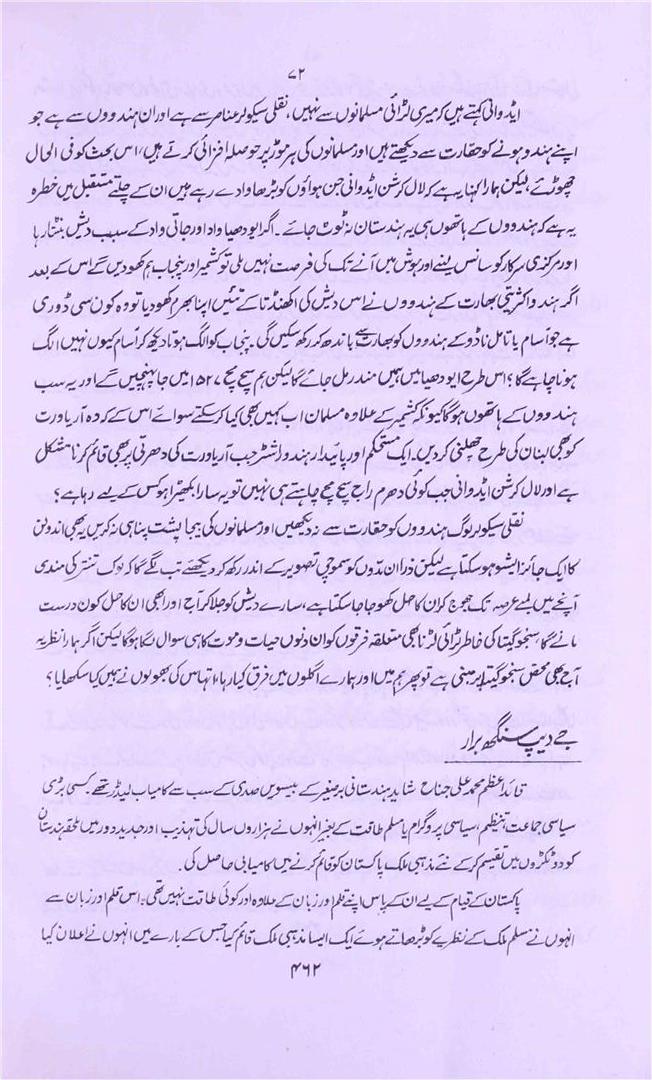 ۷۲
ایڈوانی کہتے ہیں کہ میری لڑائی مسلمانوں سے نہیں، نقلی سیکولر عناصر سے ہے اور ان ہندووں سے ہے جو
اپنے ہندو ہونے کو حقارت سے دیکھتے ہیں اور مسلمانوں کی ہر موڑ پر حوصلہ افزائی کرتے ہیں، اس بحث کو فی الحال
چھوڑیئے، لیکن ہمارا کہنا یہ ہے کہ لال کرشن ایڈوانی جن ہواؤں کو بڑھاوا دے رہے ہیں ان کے چلتے مستقبل میں خطرہ
یہ ہے کہ ہندووں کے ہاتھوں ہی یہ ہندستان نہ ٹوٹ جائے۔ اگر ایودھیا واد اور جاتی واد کے سبب دیش بنٹتا رہا
اور مرکزی سرکار کو سانس لینے اور ہوش میں آنے تک کی فرصت نہیں ملی تو کشمیر اور پنجاب ہم کھو دیں گے اس کے بعد
اگر ہندو اکثریتی بھارت کے ہندووں نے اس دیش کی اکھنڈتا کے تئیں اپنا بھرم کھو دیا تو وہ کون سی ڈوری
ہے جو آسام یا تامل ناڈو کے ہندووں کو بھارت سے باندھ کر رکھ سکیں گی۔ پنجاب کو الگ ہوتا دیکھ کر آسام کیوں نہیں الگ
ہونا چاہے گا؟ اس طرح ایودھیا میں ہمیں مندر مل جائے گا لیکن ہم سچ مچ ۱۵۲۷ میں جا پہنچیں گے اور یہ سب
ہندووں کے ہاتھوں ہوگا کیونکہ کشمیر کے علاوہ مسلمان اب کہیں بھی کیا کر سکتے سوائے اس کے کہ وہ آریاورت
کو بھی لبنان کی طرح چھلنی کر دیں۔ ایک مستحکم اور پائیدار ہندو راشٹر جب آریاورت کی دھرتی پر بھی قائم کرنا مشکل
ہے اور لال کرشن ایڈوانی جب کوئی دھرم راج سچ مچ چاہتے ہی نہیں تو یہ سارا بکھیڑا ہو کس کے لیے رہا ہے؟
نقلی سیکولر لوگ ہندووں کو حقارت سے نہ دیکھیں اور مسلمانوں کی بیجا پشت پناہی نہ کریں یہ بھی اندولن
کا ایک جائز ایشو ہو سکتا ہے لیکن ذرا ان مدّوں کو سموچی تصویر کے اندر رکھ کر دیکھئے تب لگے گا کہ لوک تنتر کی مندی
آنچ میں لمبے عرصہ تک جھونک کر ان کا حل کھوجا جا سکتا ہے، سارے دیش کو جلا کر آج اور ابھی ان کا حل کون درست
مانے گا، سنجوگیتا کی خاطر لڑائی لڑنا بھی متعلقہ فرقوں کو ان دنوں حیات و موت کا ہی سوال لگا ہوگا لیکن اگر ہمارا نظریہ
آج بھی محض سنجوگیتا پر مبنی ہے تو پھر ہم میں اور ہمارے اگلوں میں فرق کیا رہا، اتہاس کی بھولوں نے ہمیں کیا سکھایا؟
جے دیپ سنگھ برار
قائد اعظم محمد علی جناح شاید ہندستانی برصغیر کے بیسویں صدی کے سب سے کامیاب لیڈر تھے۔ کسی بڑی
سیاسی جماعت، تنظیم، سیاسی پروگرام یا مسلح طاقت کے بغیر انہوں نے ہزاروں سال کی تہذیب اور جدید دور میں ہندستان
کو دو ٹکڑوں میں تقسیم کر کے نئے مذہبی ملک پاکستان کو قائم کرنے میں کامیابی حاصل کی۔
پاکستان کے قیام کے لیے ان کے پاس اپنے قلم اور زبان کے علاوہ اور کوئی طاقت نہیں تھی۔ اس قلم اور زبان سے
انہوں نے مسلم ملک کے نظریے کو بڑھاتے ہوئے ایک ایسا مذہبی ملک قائم کیا جس کے بارے میں انہوں نے اعلان کیا
۴۶۲